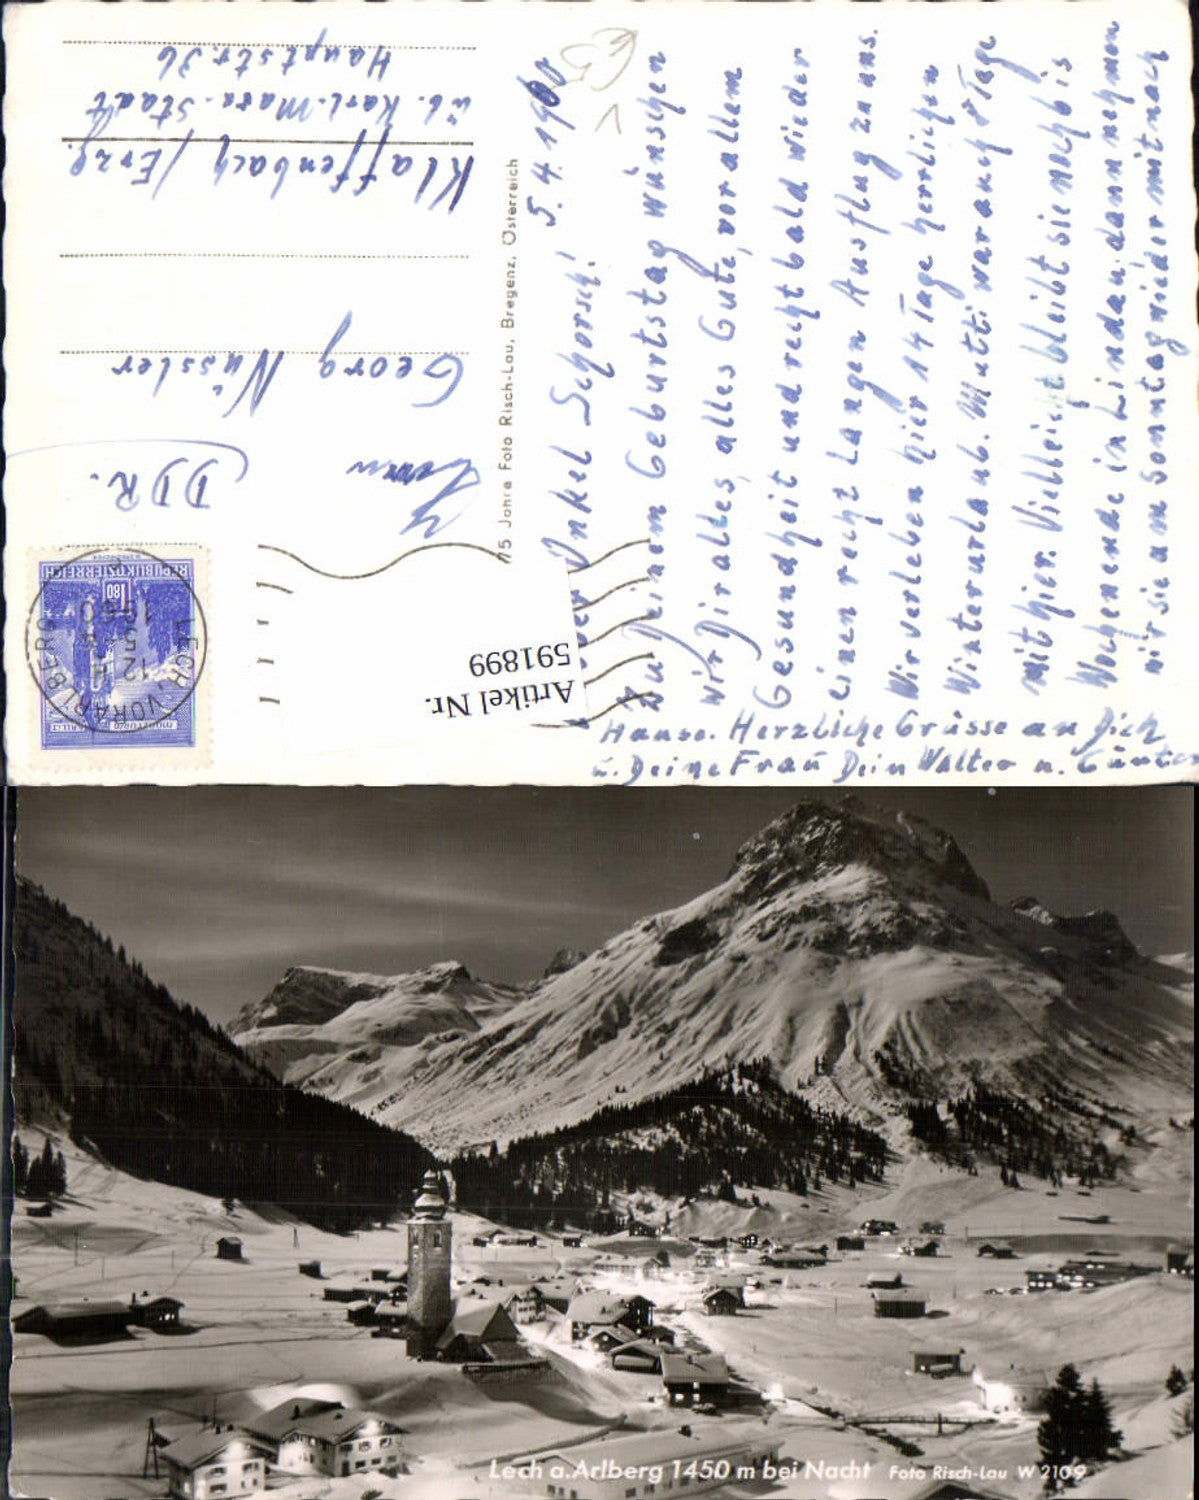 5.4.1960
Lieber Onkel Schorsch!
Zu Deinem Geburtstag wünschen
wir Dir alles, alles Gute, vor allem
Gesundheit und recht bald wieder
einen recht langen Ausflug zu uns.
Wir verleben hier 14 Tage herrlichen
Winterurlaub. Mutti war auch 8 Tage
mit hier. Vielleicht bleibt sie noch bis
Wochenende in Lindau, dann nehmen
wir sie am Sonntag wieder mit nach
Hause. Herzliche Grüsse an Dich
u. Deine Frau Dein Walter u. Günter
75 Jahre Foto Risch-Lau, Bregenz, Österreich
REPUBLIK ÖSTERREICH
1.80
LECH, VORARLBERG
1960
12
DDR.
Herrn
Georg Nüssler
Klaffenbach / Erzg.
üb. Karl-Marx-Stadt
Hauptstr. 36
Artikel Nr.
591899
Lech a. Arlberg 1450 m bei Nacht Foto Risch-Lau W 2109